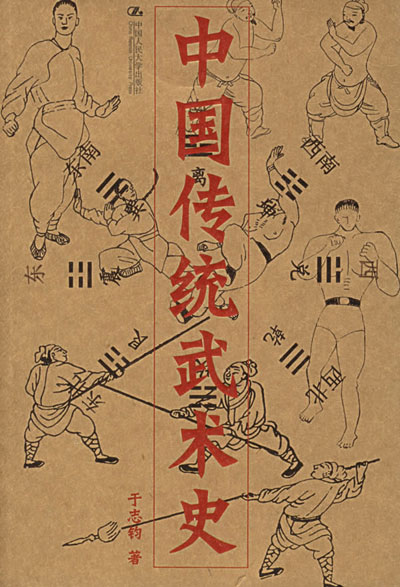 中国人民大学出版社
中国传统武术史
东南
离
西南
巽
坤
东
震
兑
西
艮
乾
东
西北
于志钧 著